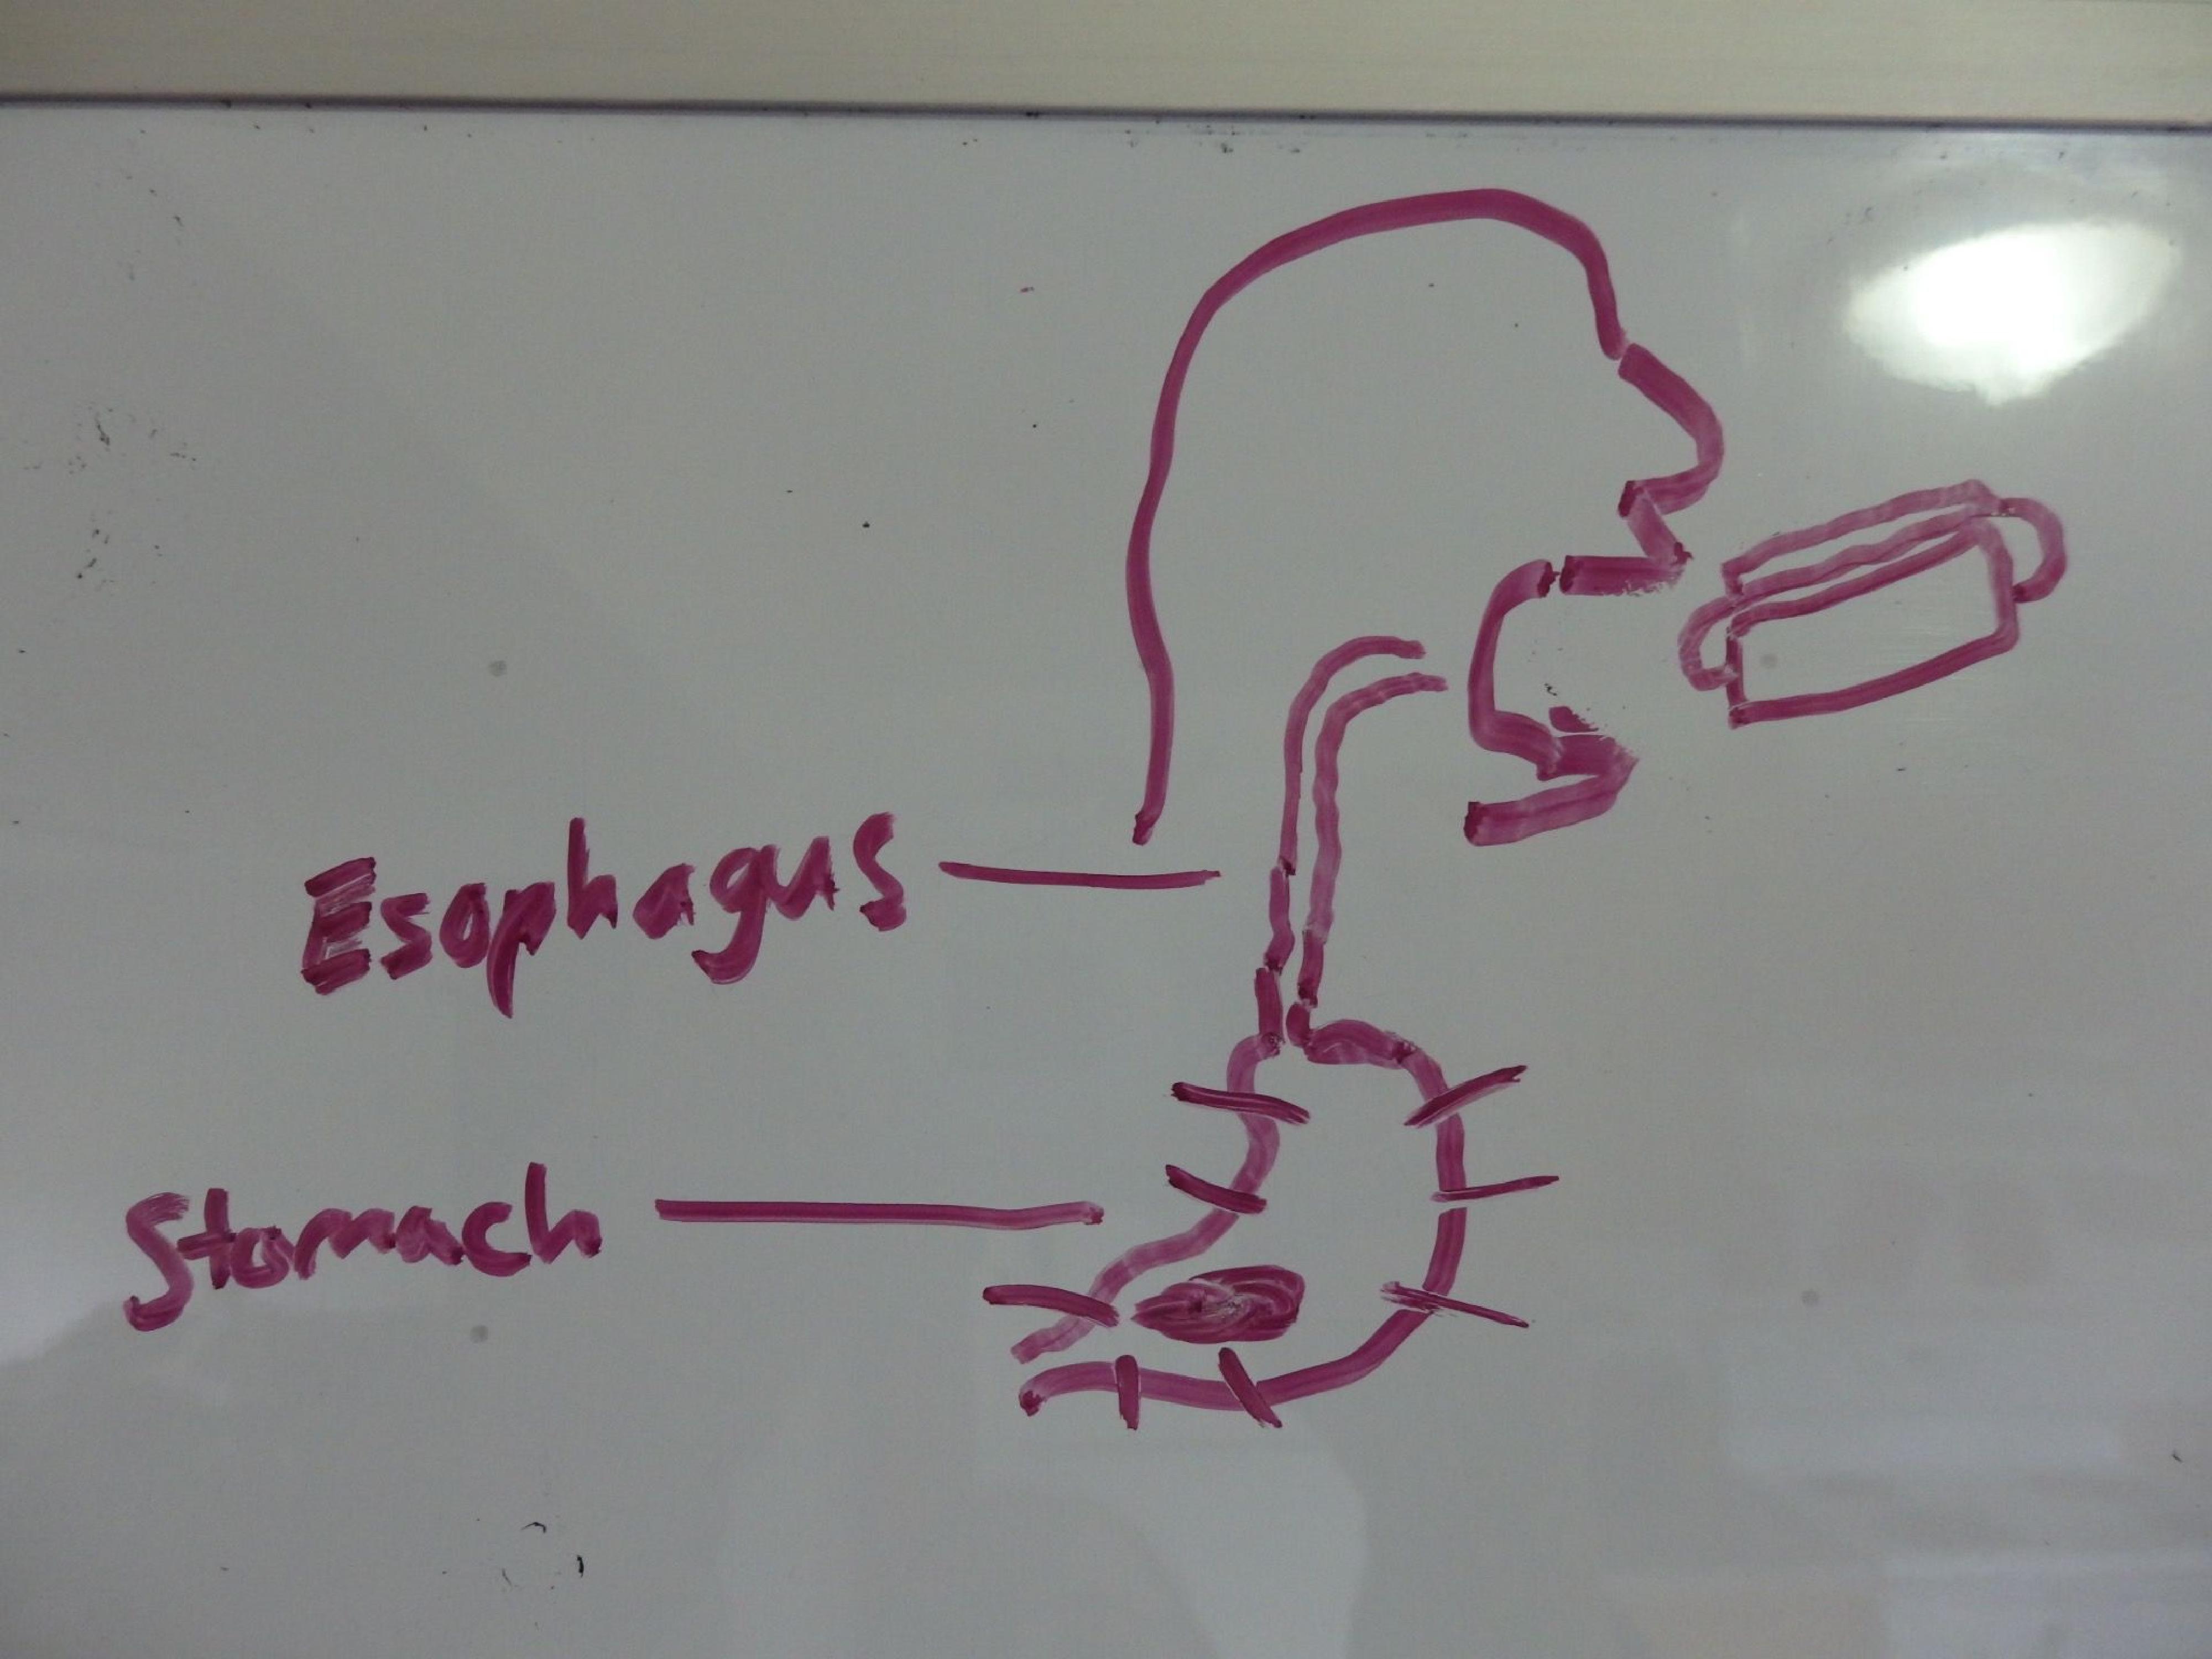 Esophagus
Stomach